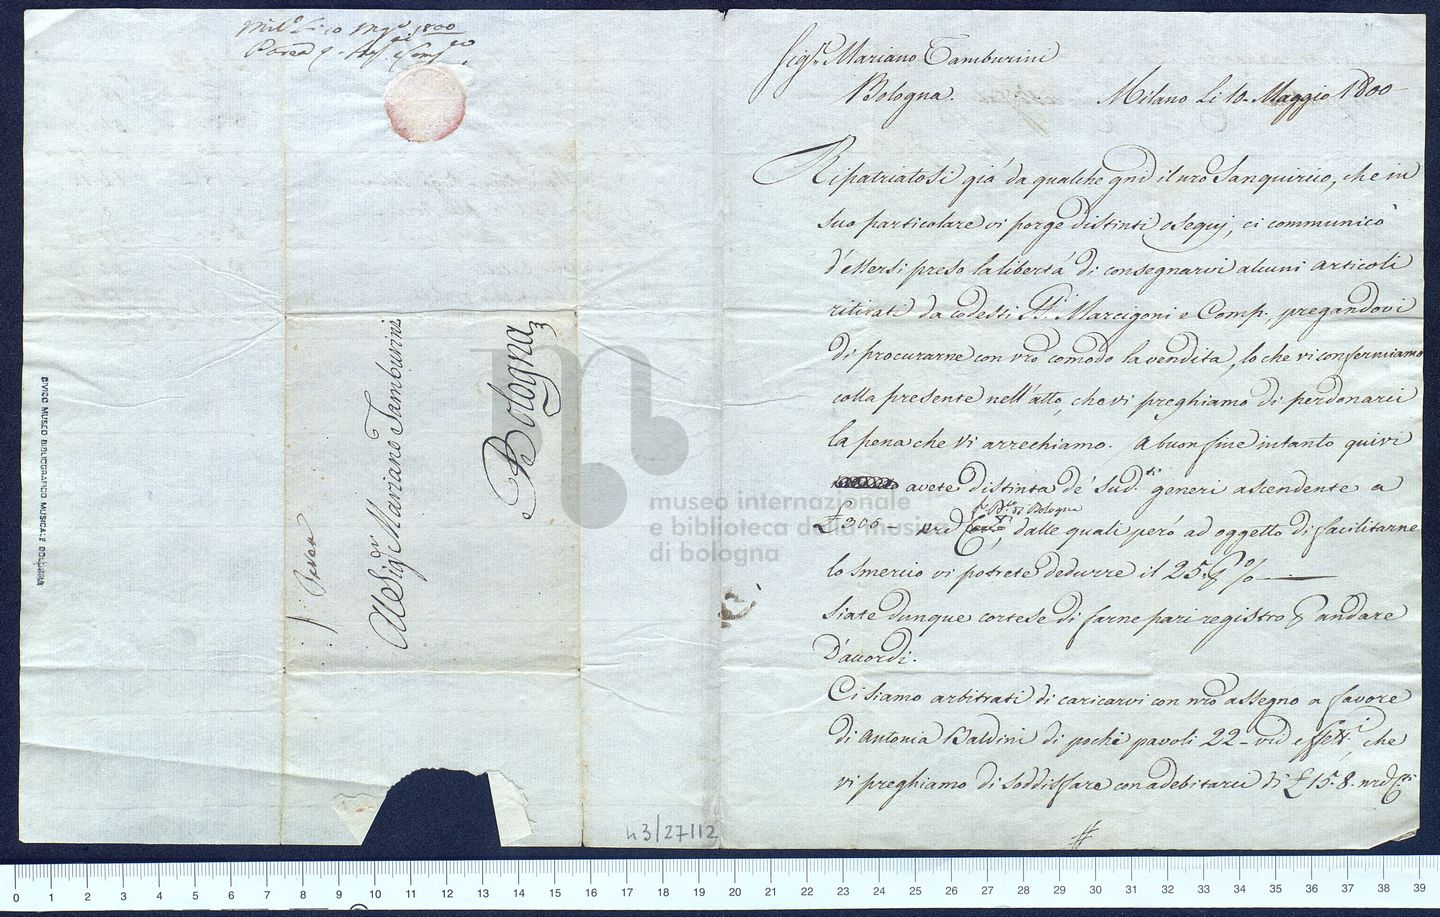 Mil.º Li 10 Mag.º 1800
Sig.r Mariano Tamburini
Bologna.
Milano Li 10. Maggio 1800
Ripatriatosi giá da qualche gni il nro Sanquirico, che in
suo particolare vi porge distinti osequj, ci communicò
d'essersi preso la libertá di consegnarvi alcuni articoli
ritirati da codesti SS.i Marcigoni e Comp., pregandovi
di procurarne con vro comodo la vendita, lo che vi confermiamo
colla presente nell'atto, che vi preghiamo di perdonarci
la pena che vi arrechiamo. A buon fine intanto quivi
avete distinta de' sud.ti generi ascendente a
di Bologna
£ 306 - dalle quali peró ad oggetto di facilitarne
lo smercio vi potrete dedurre il 25. p %
Siate dunque cortese di farne pari registro p andare
D'accordi.
Ci siamo arbitrati di caricarvi con nro assegno a favore
di Antonia Baldini di pochi pavoli 22 - che
vi preghiamo di soddisfare con adebitarci di £ 15. 8.
#
Al Sig.r Mariano Tamburini
Bologna
CIVICO MUSEO BIBLIOGRAFICO MUSICALE BOLOGNA
museo internazionale
e biblioteca della musica
di bologna
0 1 2 3 4 5 6 7 8 9 10 11 12 13 14 15 16 17 18 19 20 21 22 23 24 25 26 27 28 29 30 31 32 33 34 35 36 37 38 39